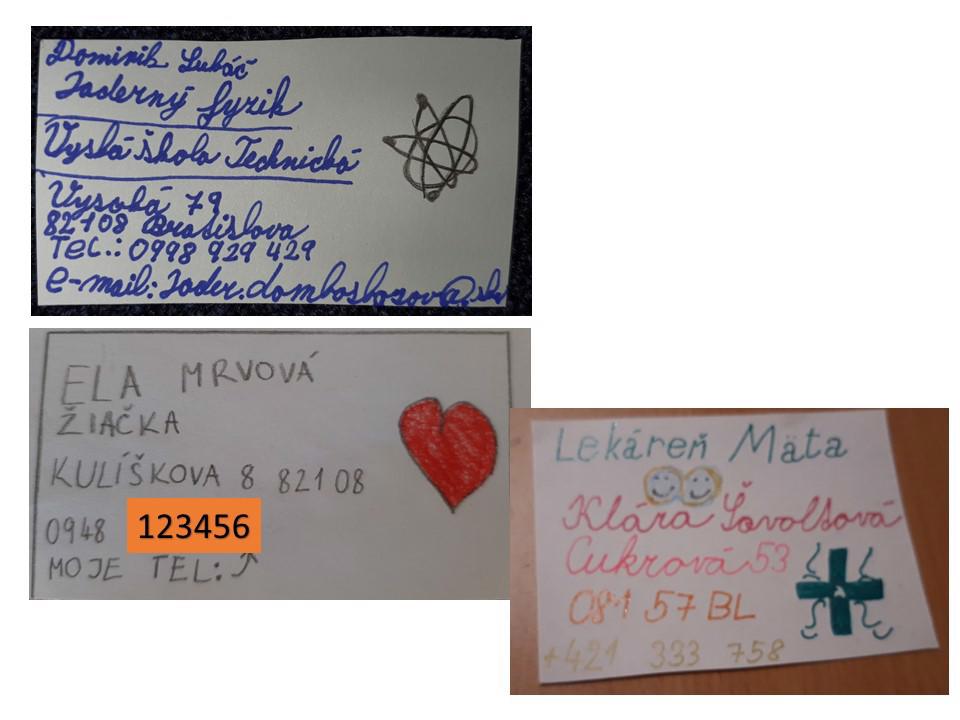 Dominik Lubáč
Jaderný fyzik
Vyská škola Technická
Vysoká 79
82108 Bratislava
Tel.: 0998 929 429
e-mail:
ELA MRVOVÁ
ŽIAČKA
KULÍŠKOVA 8 82108
0948 123456
MOJE TEL:
Lekáreň Mäta
Klára Šovoltsová
Cukrová 53
081 57 BL
+421 333 758